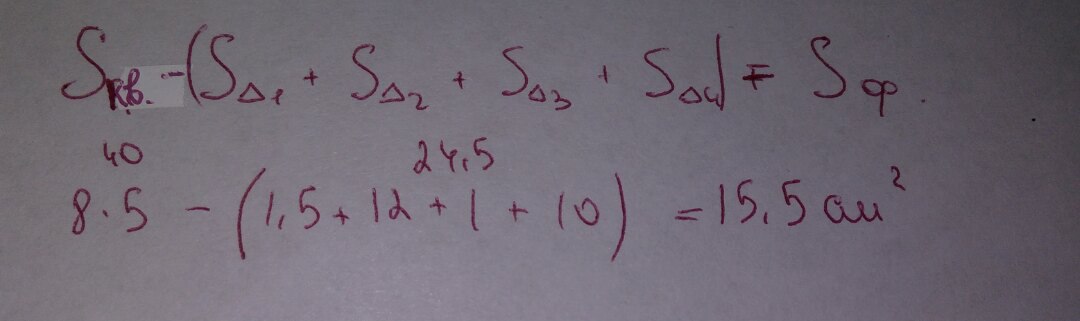 Sкв. - (SΔ1 + SΔ2 + SΔ3 + SΔ4) = Sф.
40 24,5
8·5 - (1,5 + 12 + 1 + 10) = 15,5 см²